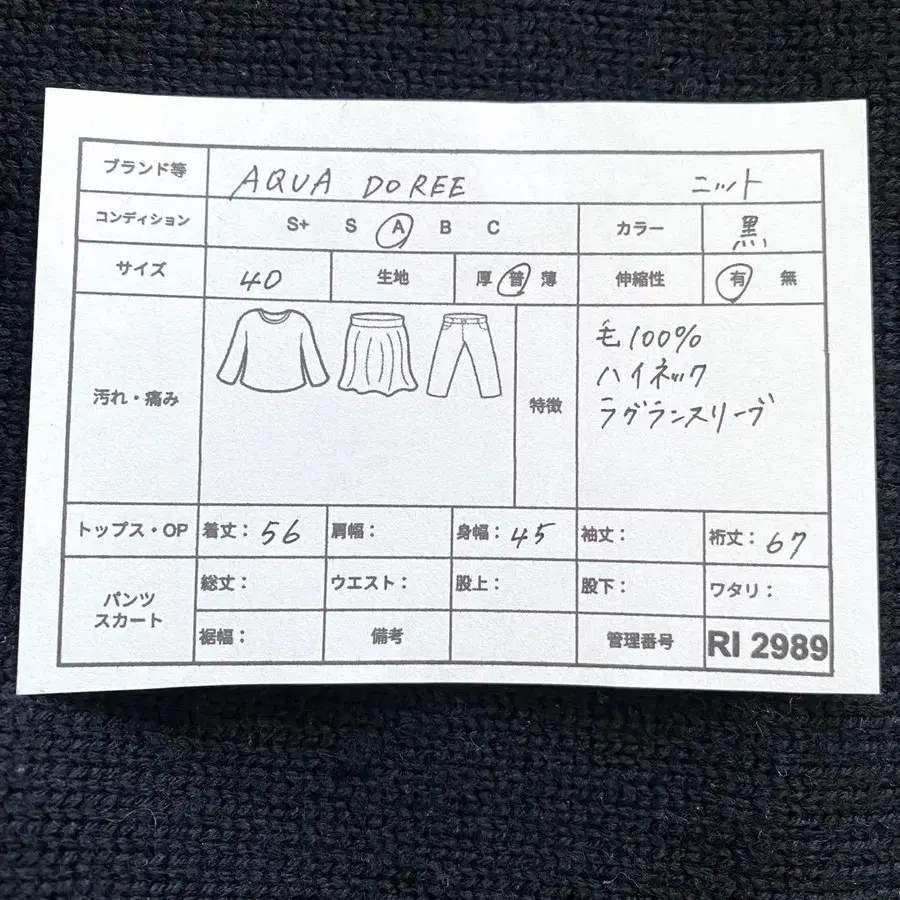 ブランド等 AQUA DOREE ニット
コンディション S+ S A B C カラー 黒
サイズ 40 生地 厚 普 薄 伸縮性 有 無
汚れ・痛み 特徴
毛100%
ハイネック
ラグランスリーブ
トップス・OP 着丈：56 肩幅： 身幅：45 袖丈： 裄丈：67
パンツ
スカート
総丈： ウエスト： 股上： 股下： ワタリ：
裾幅： 備考 管理番号 RI 2989